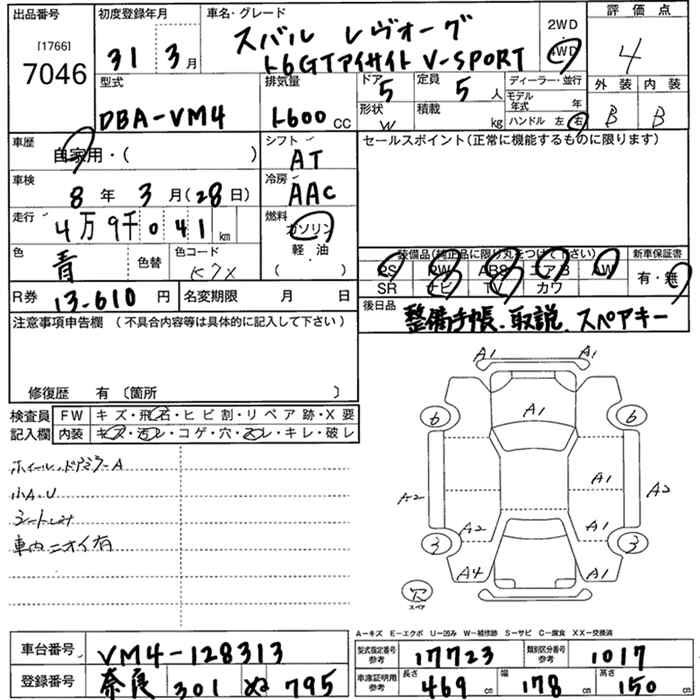 出品番号 初度登録年月 車名・グレード 2WD 4WD 評価点
[1766] 7046 31 3月 スバル レヴォーグ 4
1.6GTアイサイト V-SPORT
型式 排気量 ドア 5 定員 5人 ディーラー・並行 外装 内装
DBA-VM4 1600 cc 形状 W 積載 kg モデル年式 年 B B
ハンドル 左 右
車歴 自家用・( ) シフト AT セールスポイント(正常に機能するものに限ります)
車検 8年 3月(28日) 冷房 AAC
走行 4万9千041 km 燃料 ガソリン
色 青 色替 色コード K7X 軽油 ( ・ )
装備品(純正品に限り丸をつけて下さい) 新車保証書
PS PW ABS エアB AW 有・無
SR ナビ TV カワ
R券 13-610円 名変期限 月 日 後日品
整備手帳、取説、スペアキー
注意事項申告欄 (不具合内容等は具体的に記入して下さい)
修復歴 有 〔箇所 〕
検査員 FW キズ・飛石・ヒビ割・リペア跡・X要
記入欄 内装 キズ・汚レ・コゲ・穴・スレ・キレ・破レ
ホイール、ドアミラーA
小A、U
シートしみ
車内ニオイ有
A1 A1
6 A1 6
A2 A1 A2
A2 A1
3 3
A4 A1
穴
スペア
A−キズ E−エクボ U−凹み W−補修跡 S−サビ C−腐食 XX−交換済
車台番号 VM4-128313 型式指定番号 参考 17723 類別区分番号 参考 1017
登録番号 奈良 301 ぬ 795 車庫証明用 参考 長さ 469 cm 幅 178 cm 高さ 150 cm